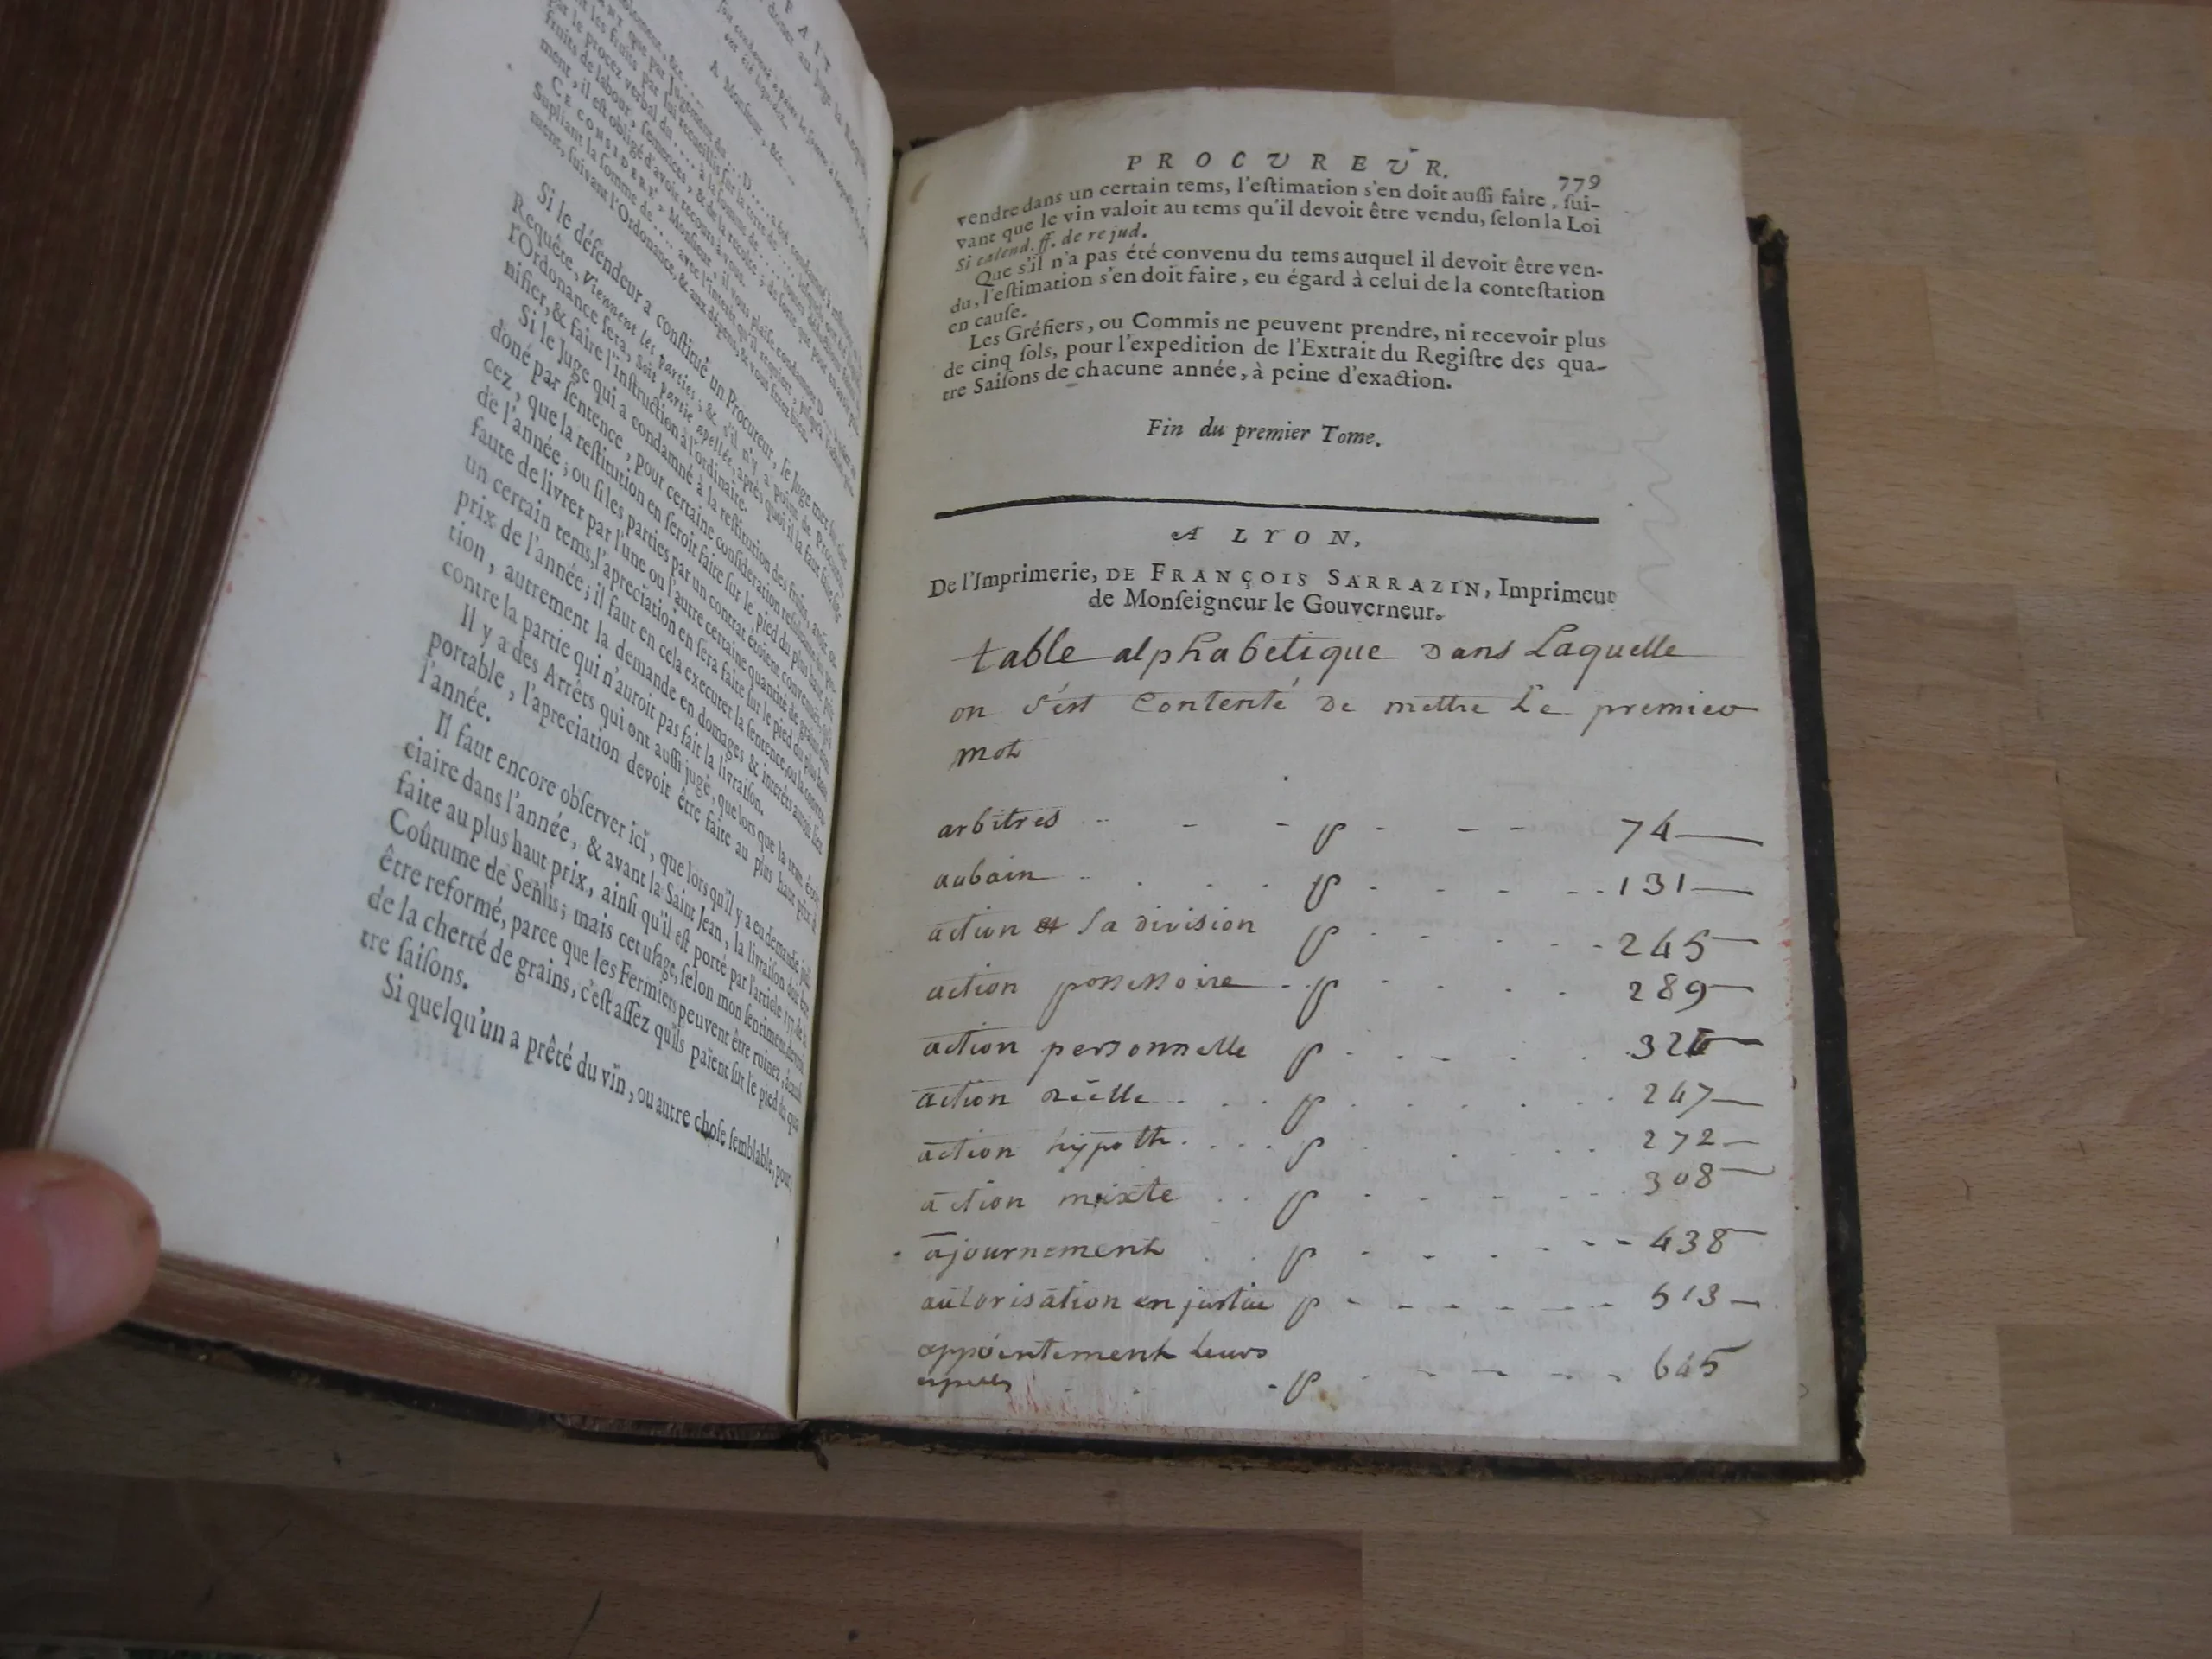 Si le défendeur a constitué un Procureur, le Juge met sur cete
Requête, Viennent les parties; & s'il n'y a point de Procureur,
l'Ordonance sera, Soit partie apellée, après quoi il la faut faire
nifier, & faire l'instruction à l'ordinaire.
Si le Juge qui a condamné à la restitution des fruits, avoit or-
doné par sentence, pour certaine consideration
cez, que la restitution en seroit faite sur le pied du plus haut prix
de l'année; ou si les parties par un contrat étoient convenuës, qu'à
faute de livrer par l'une ou l'autre certaine quantité de grains dans
un certain tems, l'apreciation en sera faite sur le pied du plus haut
prix de l'année; il faut en cela executer la sentence, ou la conven-
tion, autrement la demande en domages & interêts auroit lieu
contre la partie qui n'auroit pas fait la livraison.
Il y a des Arrêts qui ont aussi jugé, que lors que la rente étoit
portable, l'apreciation devoit être faite au plus haut prix de
l'année.
Il faut encore observer ici, que lors qu'il y a eu demande judi-
ciaire dans l'année, & avant la Saint Jean, la livraison doit être
faite au plus haut prix, ainsi qu'il est porté par l'article
Coûtume de Senlis; mais cet usage, selon mon sentiment devroit
être reformé, parce que les Fermiers peuvent être ruinez, à cause
de la cherté de grains, c'est assez qu'ils païent sur le pied des qua-
tre saisons.
Si quelqu'un a prêté du vin, ou autre chose semblable, pour
PROCUREUR. 779
vendre dans un certain tems, l'estimation s'en doit aussi faire, sui-
vant que le vin valoit au tems qu'il devoit être vendu, selon la Loi
Si calend. ff. de re jud.
Que s'il n'a pas été convenu du tems auquel il devoit être ven-
du, l'estimation s'en doit faire, eu égard à celui de la contestation
en cause.
Les Gréfiers, ou Commis ne peuvent prendre, ni recevoir plus
de cinq sols, pour l'expedition de l'Extrait du Registre des qua-
tre Saisons de chacune année, à peine d'exaction.
Fin du premier Tome.
A LYON,
De l'Imprimerie, DE FRANÇOIS SARRAZIN, Imprimeur
de Monseigneur le Gouverneur.
table alphabetique dans Laquelle
on s'est Contenté de mettre Le premier
mot
arbitres p 74
aubain p 131
action et sa division p 245
action possessoire p 289
action personnelle p
action réelle p 247
action hypoth. p 272
action mixte p 308
ajournement p 438
autorisation en justice p 513
appointement leurs
p 645